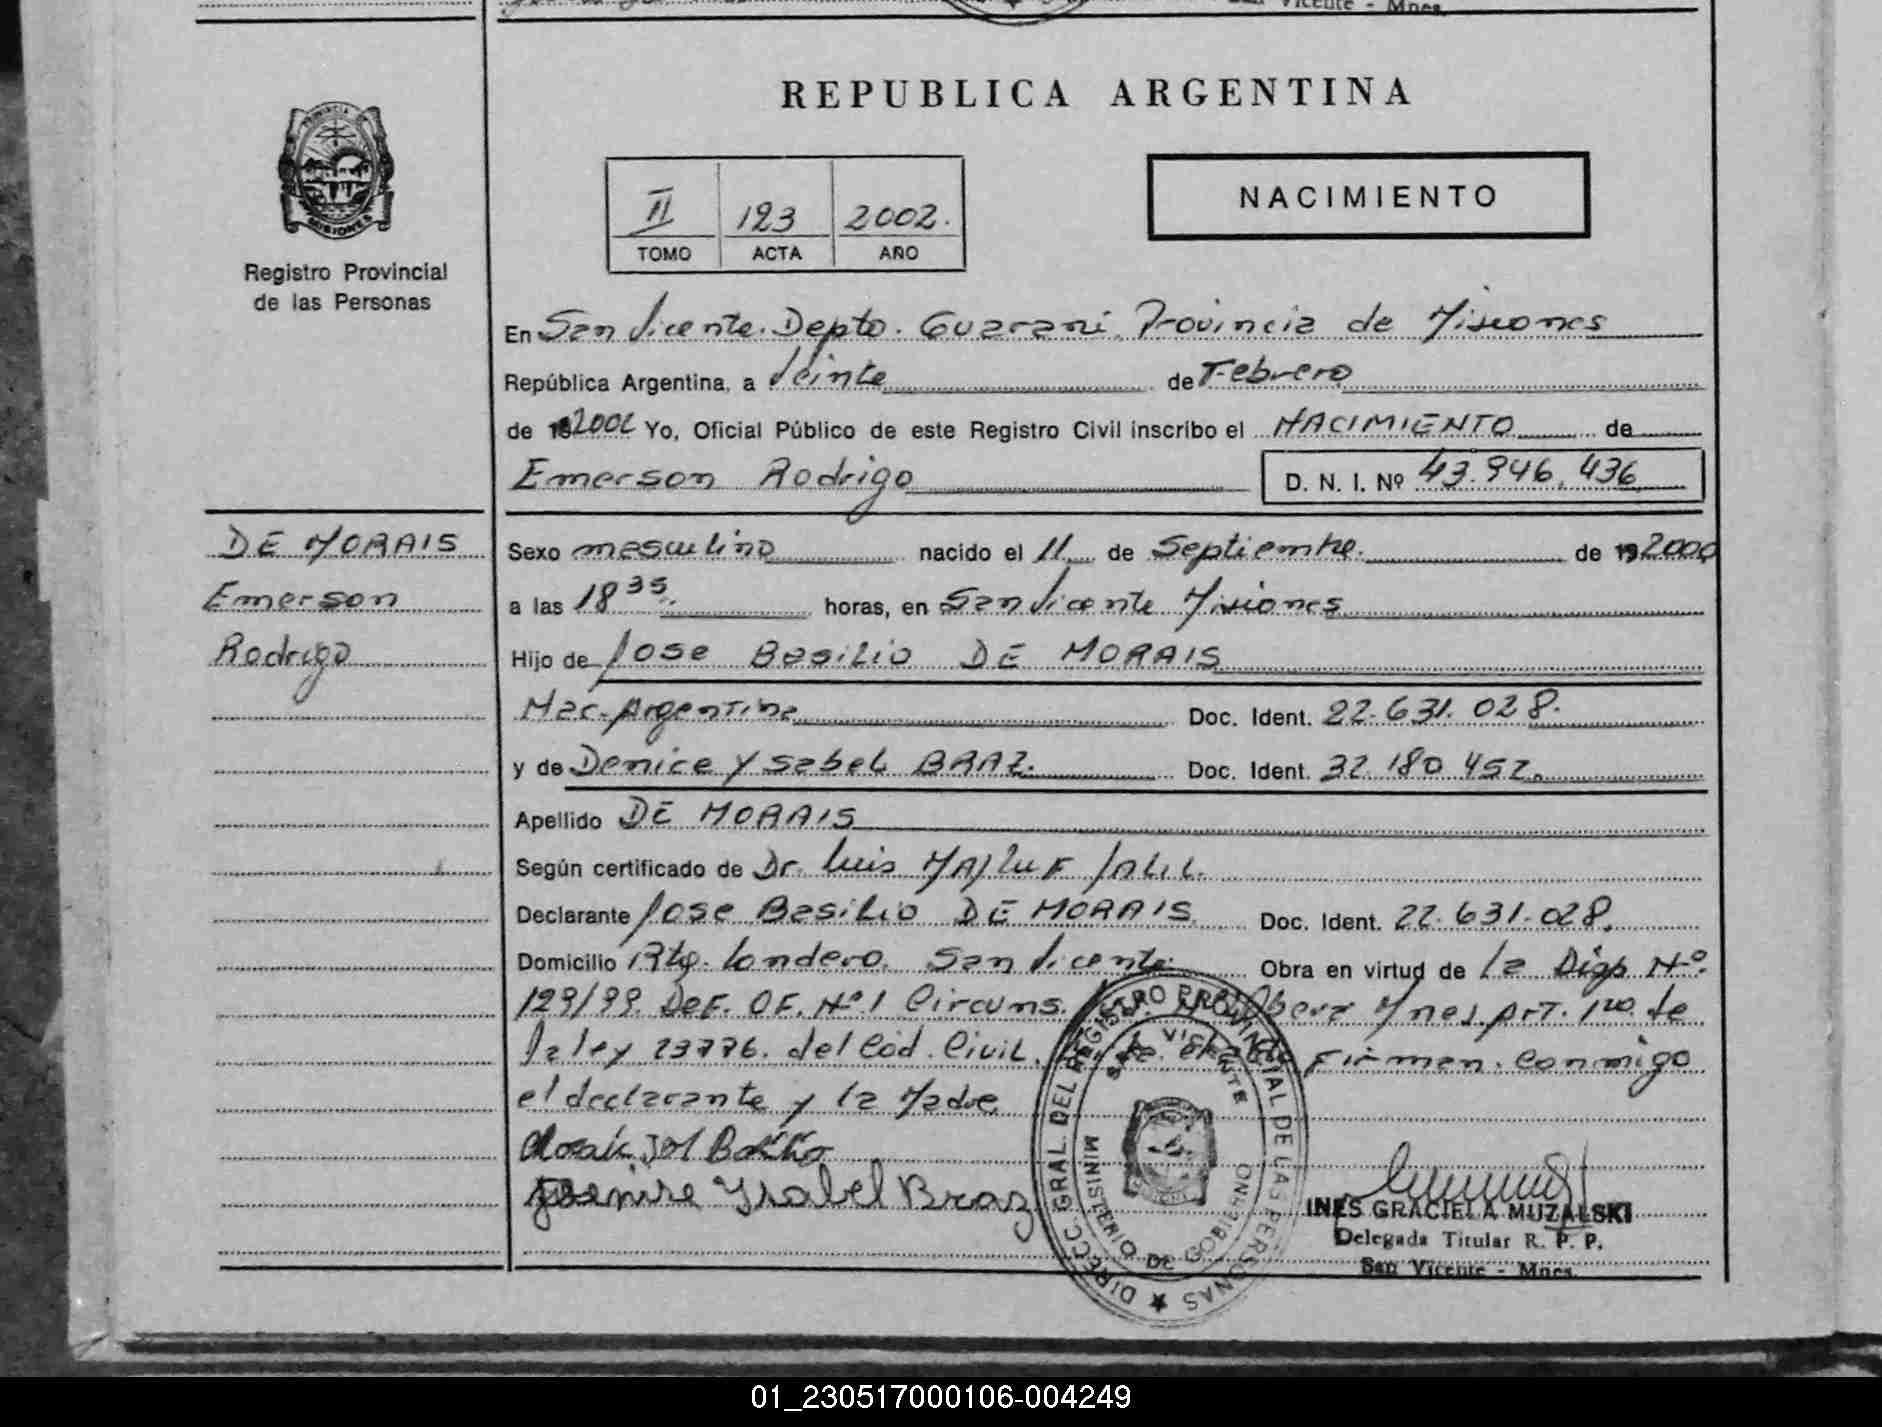 San Vicente - Mnes.
REPUBLICA ARGENTINA
PROVINCIA DE
MISIONES
Registro Provincial
de las Personas
II 123 2002.
TOMO ACTA AÑO
NACIMIENTO
En San Vicente. Depto. Guarani Provincia de Misiones
República Argentina, a Veinte de Febrero
de 192002 Yo, Oficial Público de este Registro Civil inscribo el NACIMIENTO de
Emerson Rodrigo D. N. I. Nº 43.946.436
DE MORAIS
Emerson
Rodrigo
Sexo masculino nacido el 11 de Septiembre. de 192000
a las 18 35. horas, en San Vicente Misiones
Hijo de Jose Basilio DE MORAIS
Nac. Argentina Doc. Ident. 22.631.028.
y de Denice Ysabel BRAZ. Doc. Ident. 32.180.452.
Apellido DE MORAIS
Según certificado de Dr. Luis MAJLUF JALIL.
Declarante Jose Basilio DE MORAIS Doc. Ident. 22.631.028.
Domicilio Londero. San Vicente. Obra en virtud de la Disp Nº.
129/99. DEF. OF. Nº 1 Circuns. Obera Mnes. ART. 1ro. de
la ley 23776. del Cód. Civil. Firman. Conmigo
el declarante y la Madre
Jose Basilio
Denise Ysabel Braz
DIRECC. GRAL. DEL REGISTRO PROVINCIAL DE LAS PERSONAS
SAN VICENTE
MINISTERIO DE GOBIERNO
INES GRACIELA MUZALSKI
Delegada Titular R. P. P.
San Vicente - Mnes.
01_230517000106-004249